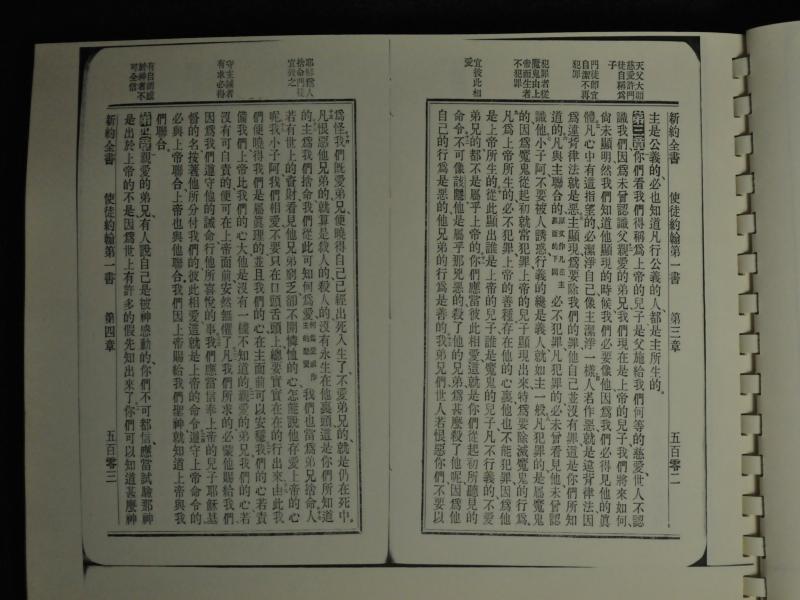 新約全書 使徒約翰第一書 第三章 五百零二
天父大顯
慈愛許門
徒自稱爲
子
門徒卽宜
自潔不再
犯罪
犯罪者從
魔鬼由上
帝而生者
不犯罪
宜彼此相
愛
主是公義的、必也知道凡行公義的人、都是主所生的。
第三章 你們看我們得稱爲上帝的兒子、是父施給我們何等的慈愛、世人不認
識我們、因爲未曾認識父、親愛的弟兄、我們現在是上帝的兒子、我們將來如何、
尙未顯明、然我們知道他顯現的時候、我們必要像他、因爲我們必得見他的眞
體、凡心中有這指望的、必潔淨自己、像主潔淨一樣、人若作惡、就是違背律法、因
爲違背律法就是惡、主顯現、爲要除我們的罪、他自己並沒有罪、這是你們所知
道的、凡與主聯合的、必不犯罪、凡犯罪的、必未曾看見他、未曾認
識他、小子阿、不要被人誘惑、行義的纔是義人、就如主一般、凡犯罪的是屬魔鬼
的、因爲魔鬼從起初就常犯罪、上帝的兒子顯現出來、特爲要除滅魔鬼的行爲、
凡爲上帝所生的、必不犯罪、上帝的善種存在他的心裏、他也不能犯罪、因爲他
是上帝所生的、從此顯出誰是上帝的兒子、誰是魔鬼的兒子、凡不行義的、不愛
弟兄的、都不是屬乎上帝的、你們應當彼此相愛、這就是你們從起初所聽見的
命令、不可像該隱、他是屬乎那兇惡的、殺了他的兄弟、爲甚麼殺了他呢、因爲他
的行爲是惡的、他兄弟的行爲是善的、我弟兄們、世人若恨惡你們、不要以
耶穌爲人
捨命門徒
宜效之
守主誡者
有求必得
有自謂感
於神者不
可全信
爲怪、我們旣愛弟兄、便曉得自己已經出死入生了、不愛弟兄的、就是仍在死中、
凡恨惡他兄弟的、就算是殺人的、殺人的沒有永生在他裏頭、這是你們所知道
的、主爲我們捨命、我們從此可知何爲愛、我們也當爲弟兄捨命、人
若有世上的貲財、看見他兄弟窮乏、卻不開憐恤的心、怎能說他存愛上帝的心
呢、我小子阿、我們相愛、不要只在口頭舌頭上、總要實實在在的行出來、由此我
們便曉得我們是屬眞理的、並且我們的心在主面前可以安穩、我們的心若責
備我們、上帝比我們的心大、他是沒有一樣不知道的、親愛的弟兄、我們的心若
沒有可自責的、便可在上帝面前安然無懼了、凡我們所求的、必蒙他賜給我們、
因爲我們遵守他的誡命、行他所喜悅的事、我們應當信奉上帝的兒子耶穌基
督的名、按著他所分付我們的、彼此相愛、這就是上帝的命令、遵守上帝命令的、
必與上帝聯合、上帝也與他聯合、我們因上帝賜給我們聖神、就知道上帝與我
們聯合。
第四章 親愛的弟兄、有人說自己是被神感動的、你們不可都信、應當試驗那神
是出於上帝的不是、因爲世上有許多的假先知出來了、你們可以知道甚麼神
新約全書 使徒約翰第一書 第四章 五百零三